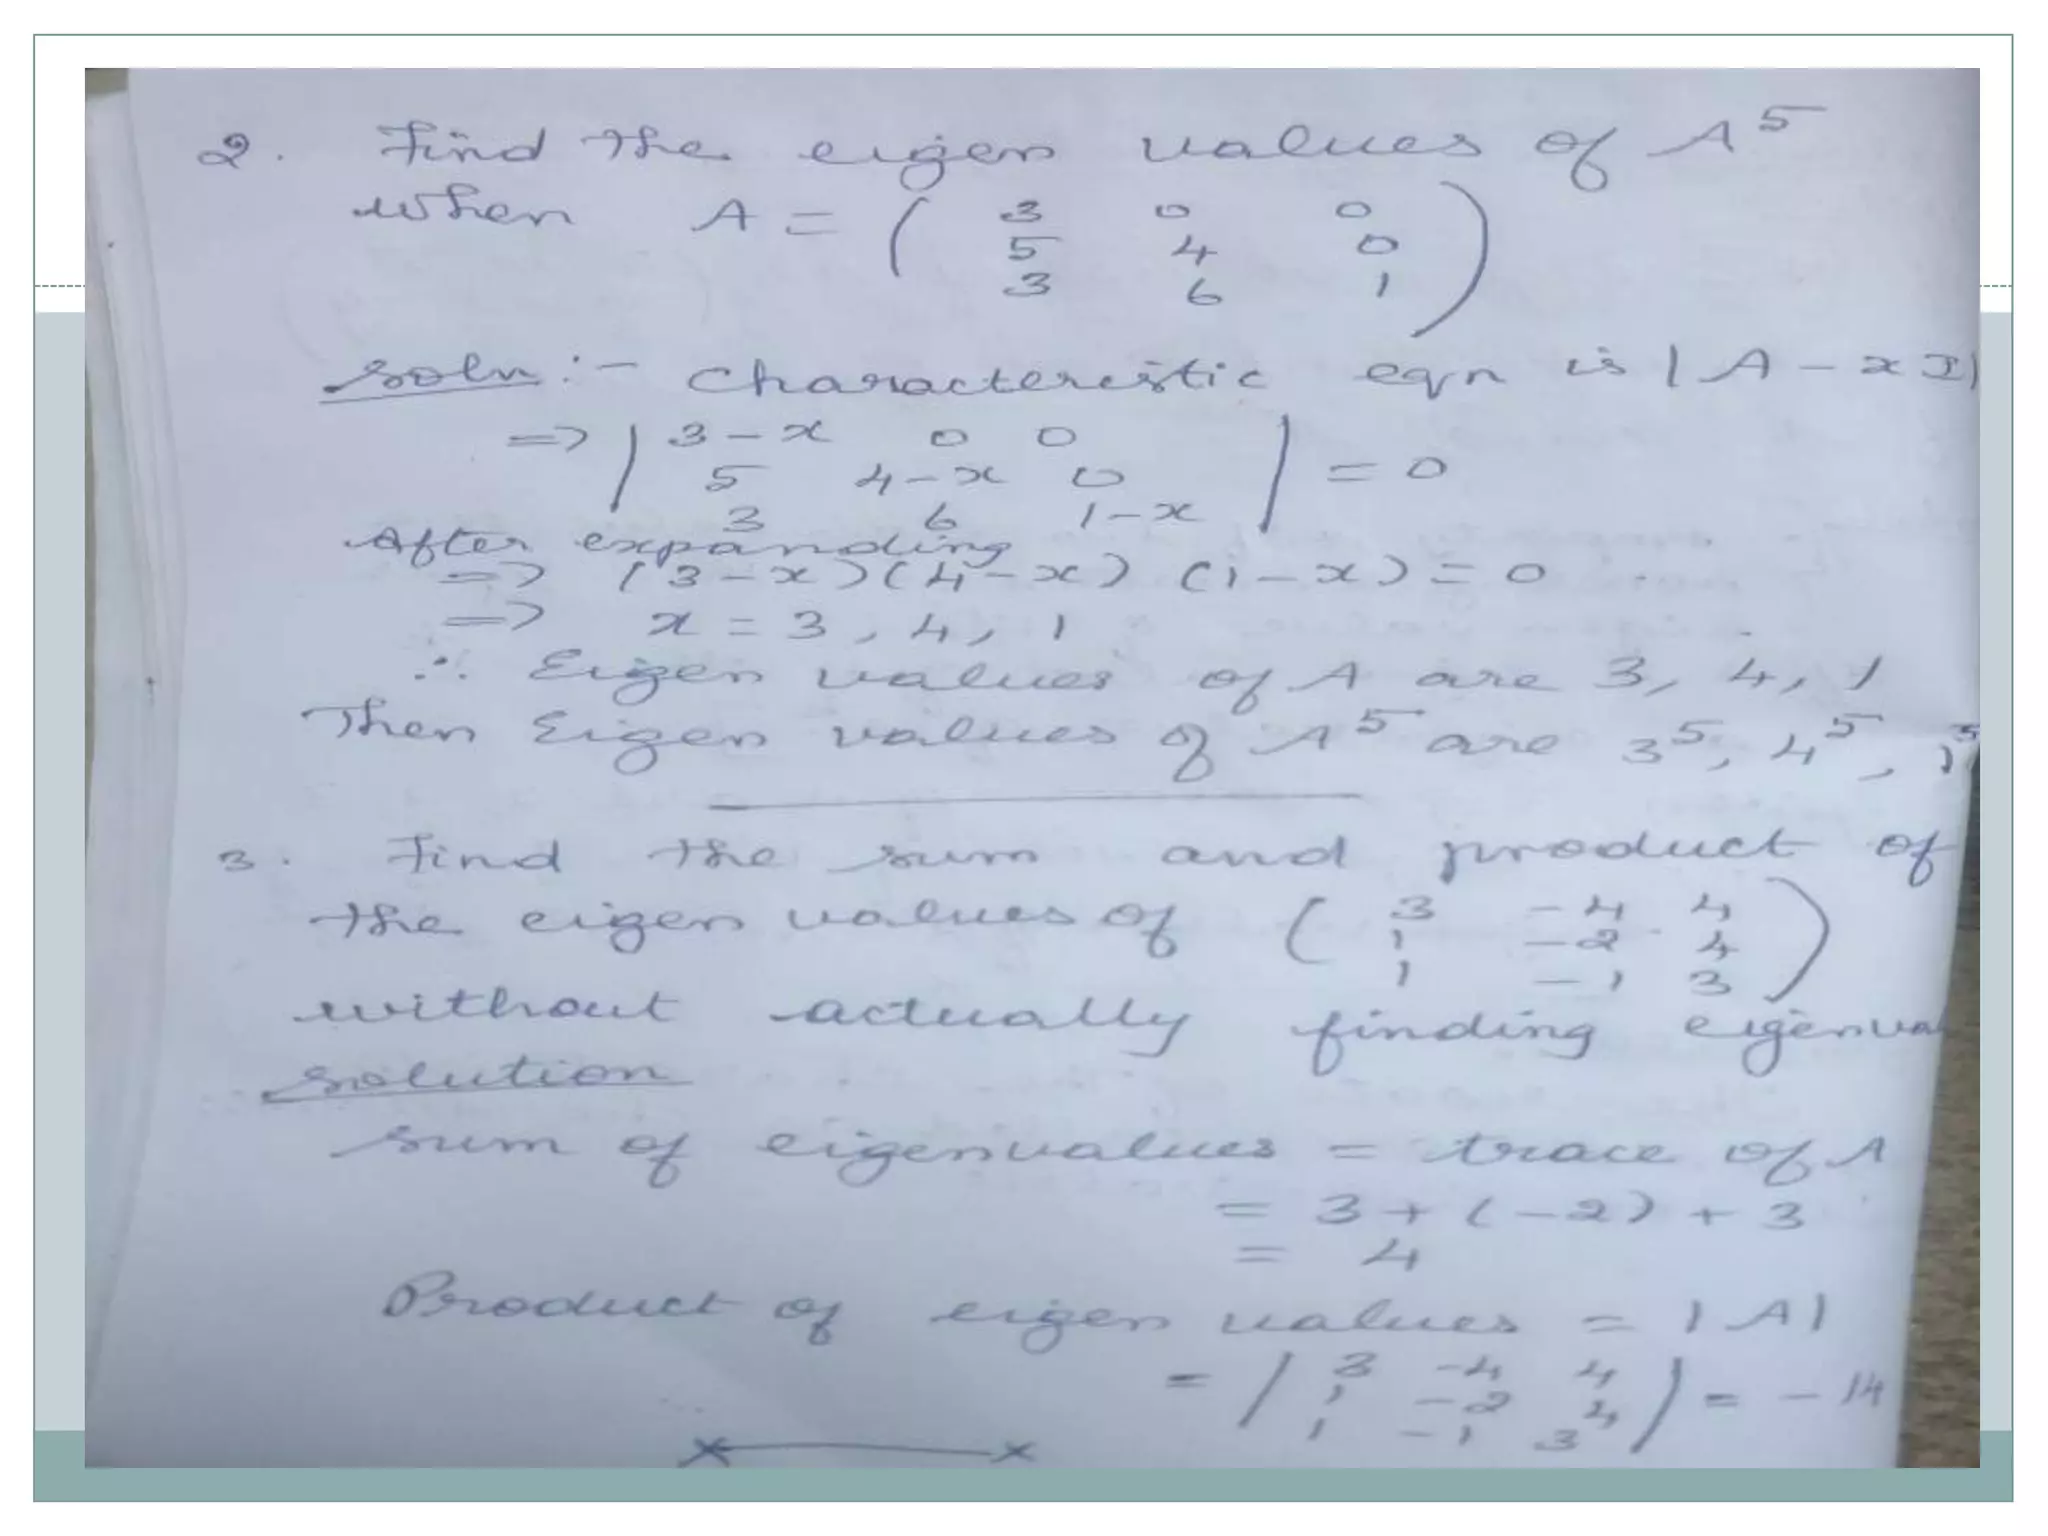 2. Find the eigen values of A⁵
when A = ( 3 0 0
5 4 0
3 6 1 )
Soln :- Characteristic eqn is |A - xI|
=> | 3-x 0 0
5 4-x 0 | = 0
3 6 1-x
After expanding
=> (3-x)(4-x) (1-x) = 0
=> x = 3, 4, 1
∴ Eigen values of A are 3, 4, 1
Then Eigen values of A⁵ are 3⁵, 4⁵, 1⁵
3. Find the sum and product of
the eigen values of ( 3 -4 4
1 -2 4
1 -1 3 )
without actually finding eigenva
Solution
Sum of eigenvalues = trace of A
= 3 + (-2) + 3
= 4
Product of eigen values = |A|
= | 3 -4 4
1 -2 4 | = -14
1 -1 3